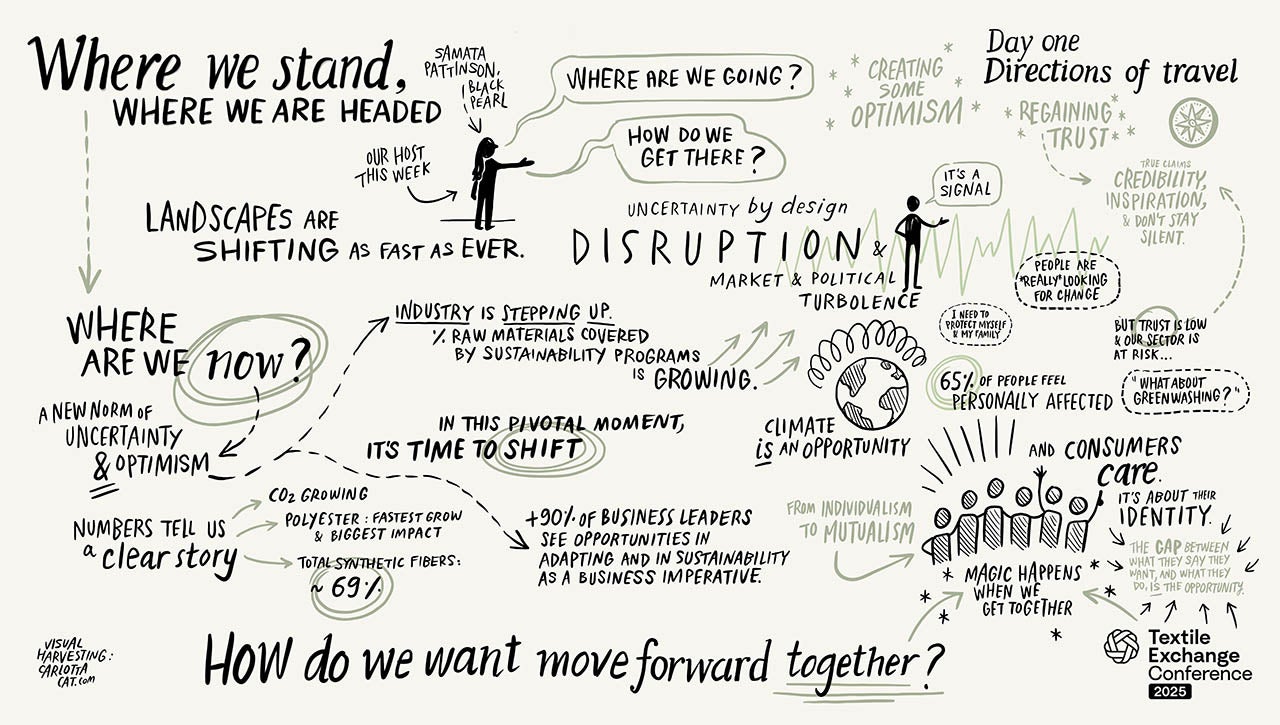 Where we stand,
WHERE WE ARE HEADED
SAMATA
PATTINSON,
BLACK
PEARL
OUR HOST
THIS WEEK
WHERE ARE WE GOING?
HOW DO WE
GET THERE?
CREATING
SOME
OPTIMISM
Day one
Directions of travel
REGAINING
TRUST
TRUE CLAIMS
CREDIBILITY,
INSPIRATION,
& DON'T STAY
SILENT.
LANDSCAPES ARE
SHIFTING AS FAST AS EVER.
UNCERTAINTY by design
DISRUPTION &
MARKET & POLITICAL
TURBOLENCE
IT'S A
SIGNAL
PEOPLE ARE
*REALLY* LOOKING
FOR CHANGE
I NEED TO
PROTECT MYSELF
& MY FAMILY
BUT TRUST IS LOW
& OUR SECTOR IS
AT RISK...
"WHAT ABOUT
GREENWASHING?"
WHERE
ARE WE now?
INDUSTRY IS STEPPING UP.
% RAW MATERIALS COVERED
BY SUSTAINABILITY PROGRAMS
IS GROWING.
65% OF PEOPLE FEEL
PERSONALLY AFFECTED
CLIMATE
is AN OPPORTUNITY
A NEW NORM OF
UNCERTAINTY
& OPTIMISM
IN THIS PIVOTAL MOMENT,
IT'S TIME TO SHIFT
AND CONSUMERS
care.
IT'S ABOUT THEIR
IDENTITY.
NUMBERS TELL US
a clear story
CO2 GROWING
POLYESTER: FASTEST GROW
& BIGGEST IMPACT
TOTAL SYNTHETIC FIBERS:
~ 69%
+90% OF BUSINESS LEADERS
SEE OPPORTUNITIES IN
ADAPTING AND IN SUSTAINABILITY
AS A BUSINESS IMPERATIVE.
FROM INDIVIDUALISM
TO MUTUALISM
THE GAP BETWEEN
WHAT THEY SAY THEY
WANT, AND WHAT THEY
DO, IS THE OPPORTUNITY.
MAGIC HAPPENS
WHEN WE
GET TOGETHER
HOW do we want move forward together?
VISUAL
HARVESTING:
CARLOTTA
CAT.com
Textile
Exchange
Conference
2025